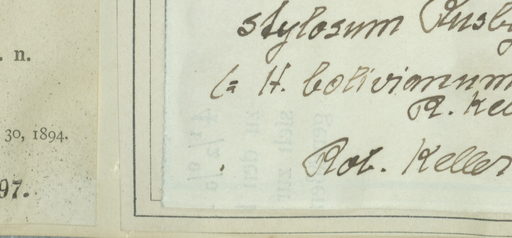 . n.
30, 1894.
97.
stylosum Rusby
(= H. bolivianum
R. Kel
Rob. Keller